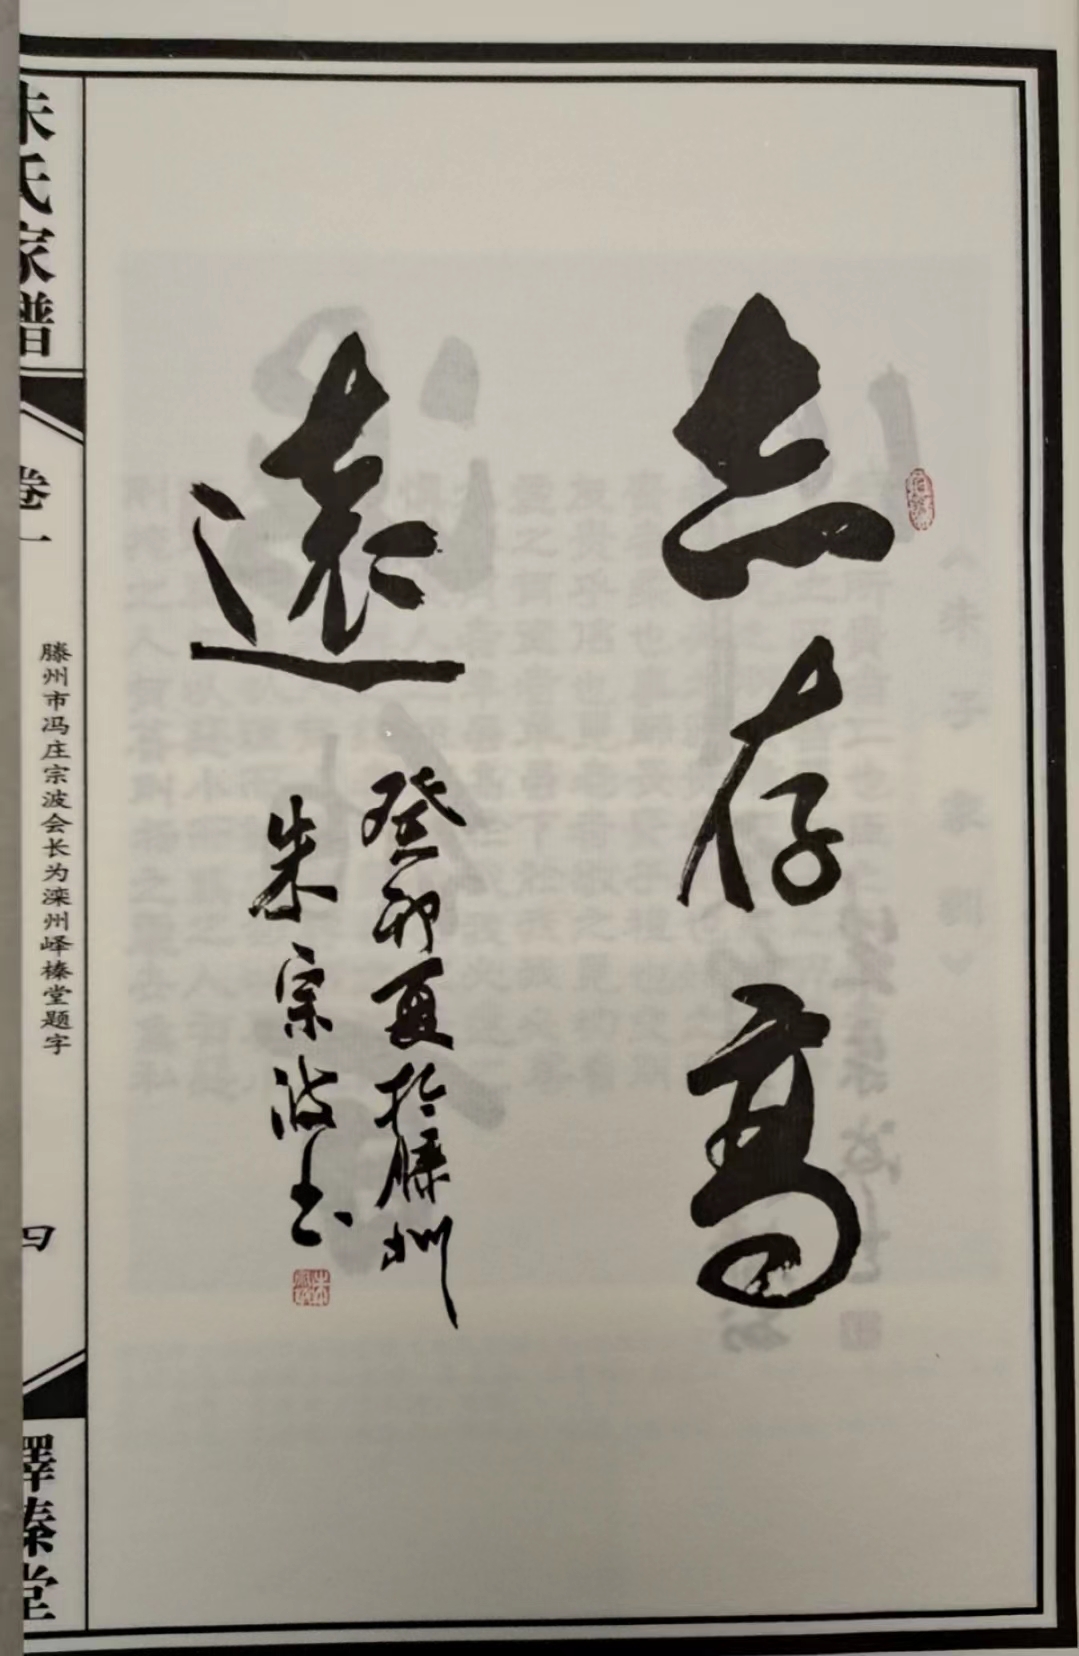 志存高
遠
癸卯夏於滕州
朱宗波书
朱氏家譜
卷一
滕州市冯庄宗波会长为滦州峄榛堂题字
四
嶧榛堂